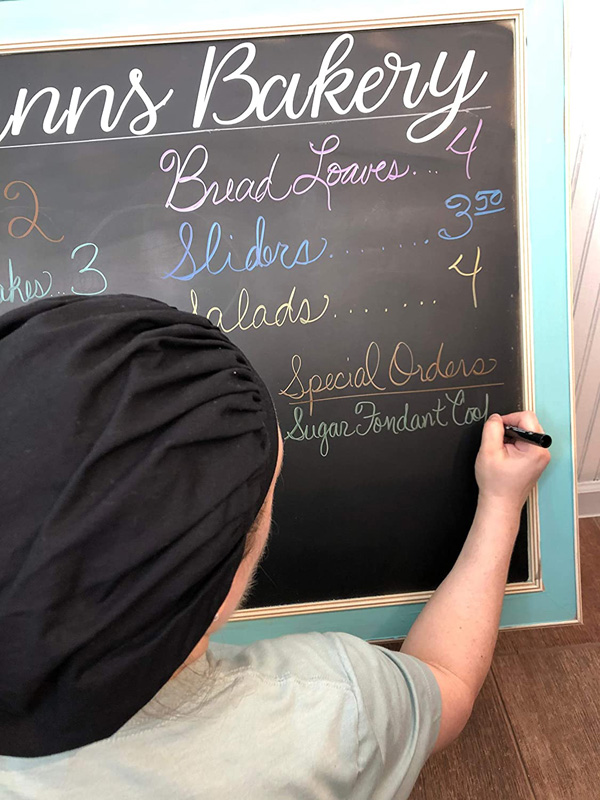 nns Bakery
Bread Loaves... 4
2
Sliders........ 3.50
akes.. 3
Salads....... 4
Special Orders
Sugar Fondant Cook